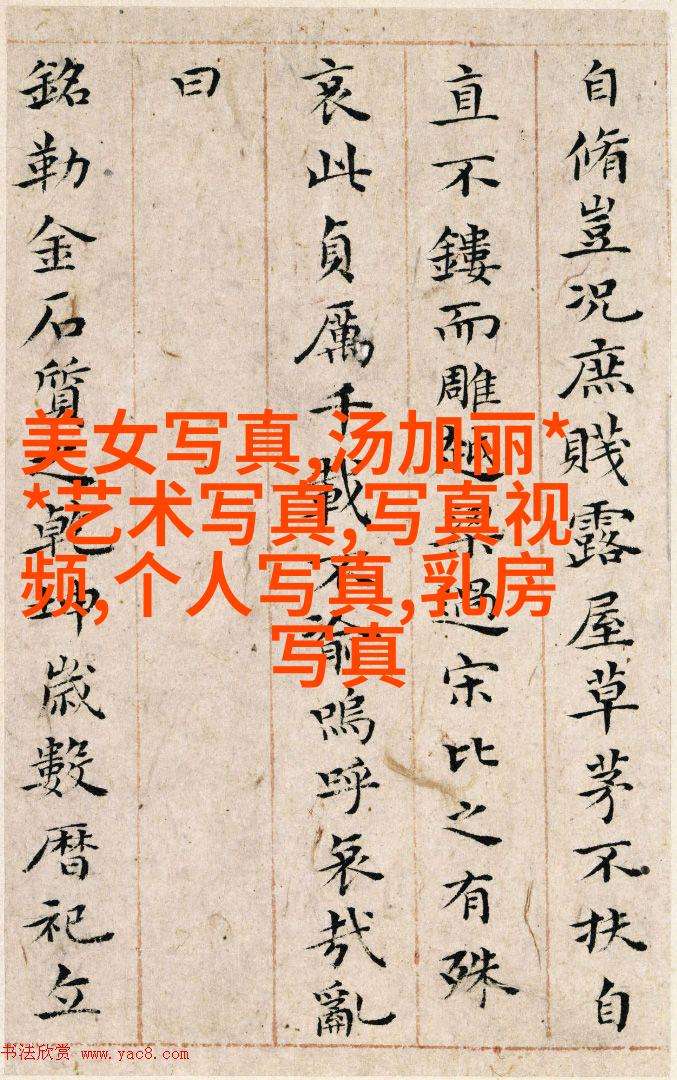 自脩豈況庶賤露屋草茅不扶自
直不鏤而雕越梁過宋比之有殊
哀此貞厲千載不渝嗚呼哀哉亂
曰
銘勒金石質之乾坤歲數曆祀立
美女写真,汤加丽*
*艺术写真,写真视
频,个人写真,乳房
写真
书法欣赏 www.yac8.com